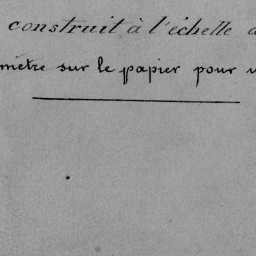 construit à l'échelle
mètre sur le papier pour